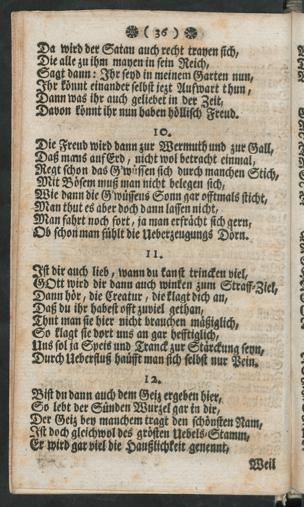 ( 36 )
Da wird der Satan auch recht trauen sich,
Die alle zu ihm mayen in sein Reich,
Sagt dann: Ihr seyd in meinem Garten nun,
Ihr könnt einander selbst jezt Aufwart thun,
Dann was ihr auch geliebet in der Zeit,
Davon könnt ihr nun haben höllisch Freud.
10.
Die Freud wird dann zur Wermuth und zur Gall,
Daß mans auf Erd, nicht wol betracht einmal,
Regt schon das G'wüssen sich durch manchen Stich,
Mit Bösem muß man nicht belegen sich,
Wie dann die G'wüssens Sonn gar offtmals sticht,
Man thut es aber doch dann lassen nicht,
Man fahrt noch fort, ja man erfrächt sich gern,
Ob schon man fühlt die Ueberzeugungs Dorn.
11.
Ist dir auch lieb, wann du kanst trincken viel,
GOtt wird dir dann auch winken zum Straff-Ziel,
Dann hör, die Creatur, die klagt dich an,
Daß du ihr habest offt zuviel gethan,
Thut man sie hier nicht brauchen mäßiglich,
So klagt sie dort uns an gar hefftiglich,
Uns sol ja Speis und Tranck zur Stärckung seyn,
Durch Ueberfluß häufft man sich selbst nur Pein.
12.
Bist du dann auch dem Geiz ergeben hier,
So lebt der Sünden Wurzel gar in dir,
Der Geiz bey manchem tragt den schönsten Nam,
Ist doch gleichwol des grösten Uebels-Stamm,
Er wird gar viel die Haußlichkeit genennt,
Weil